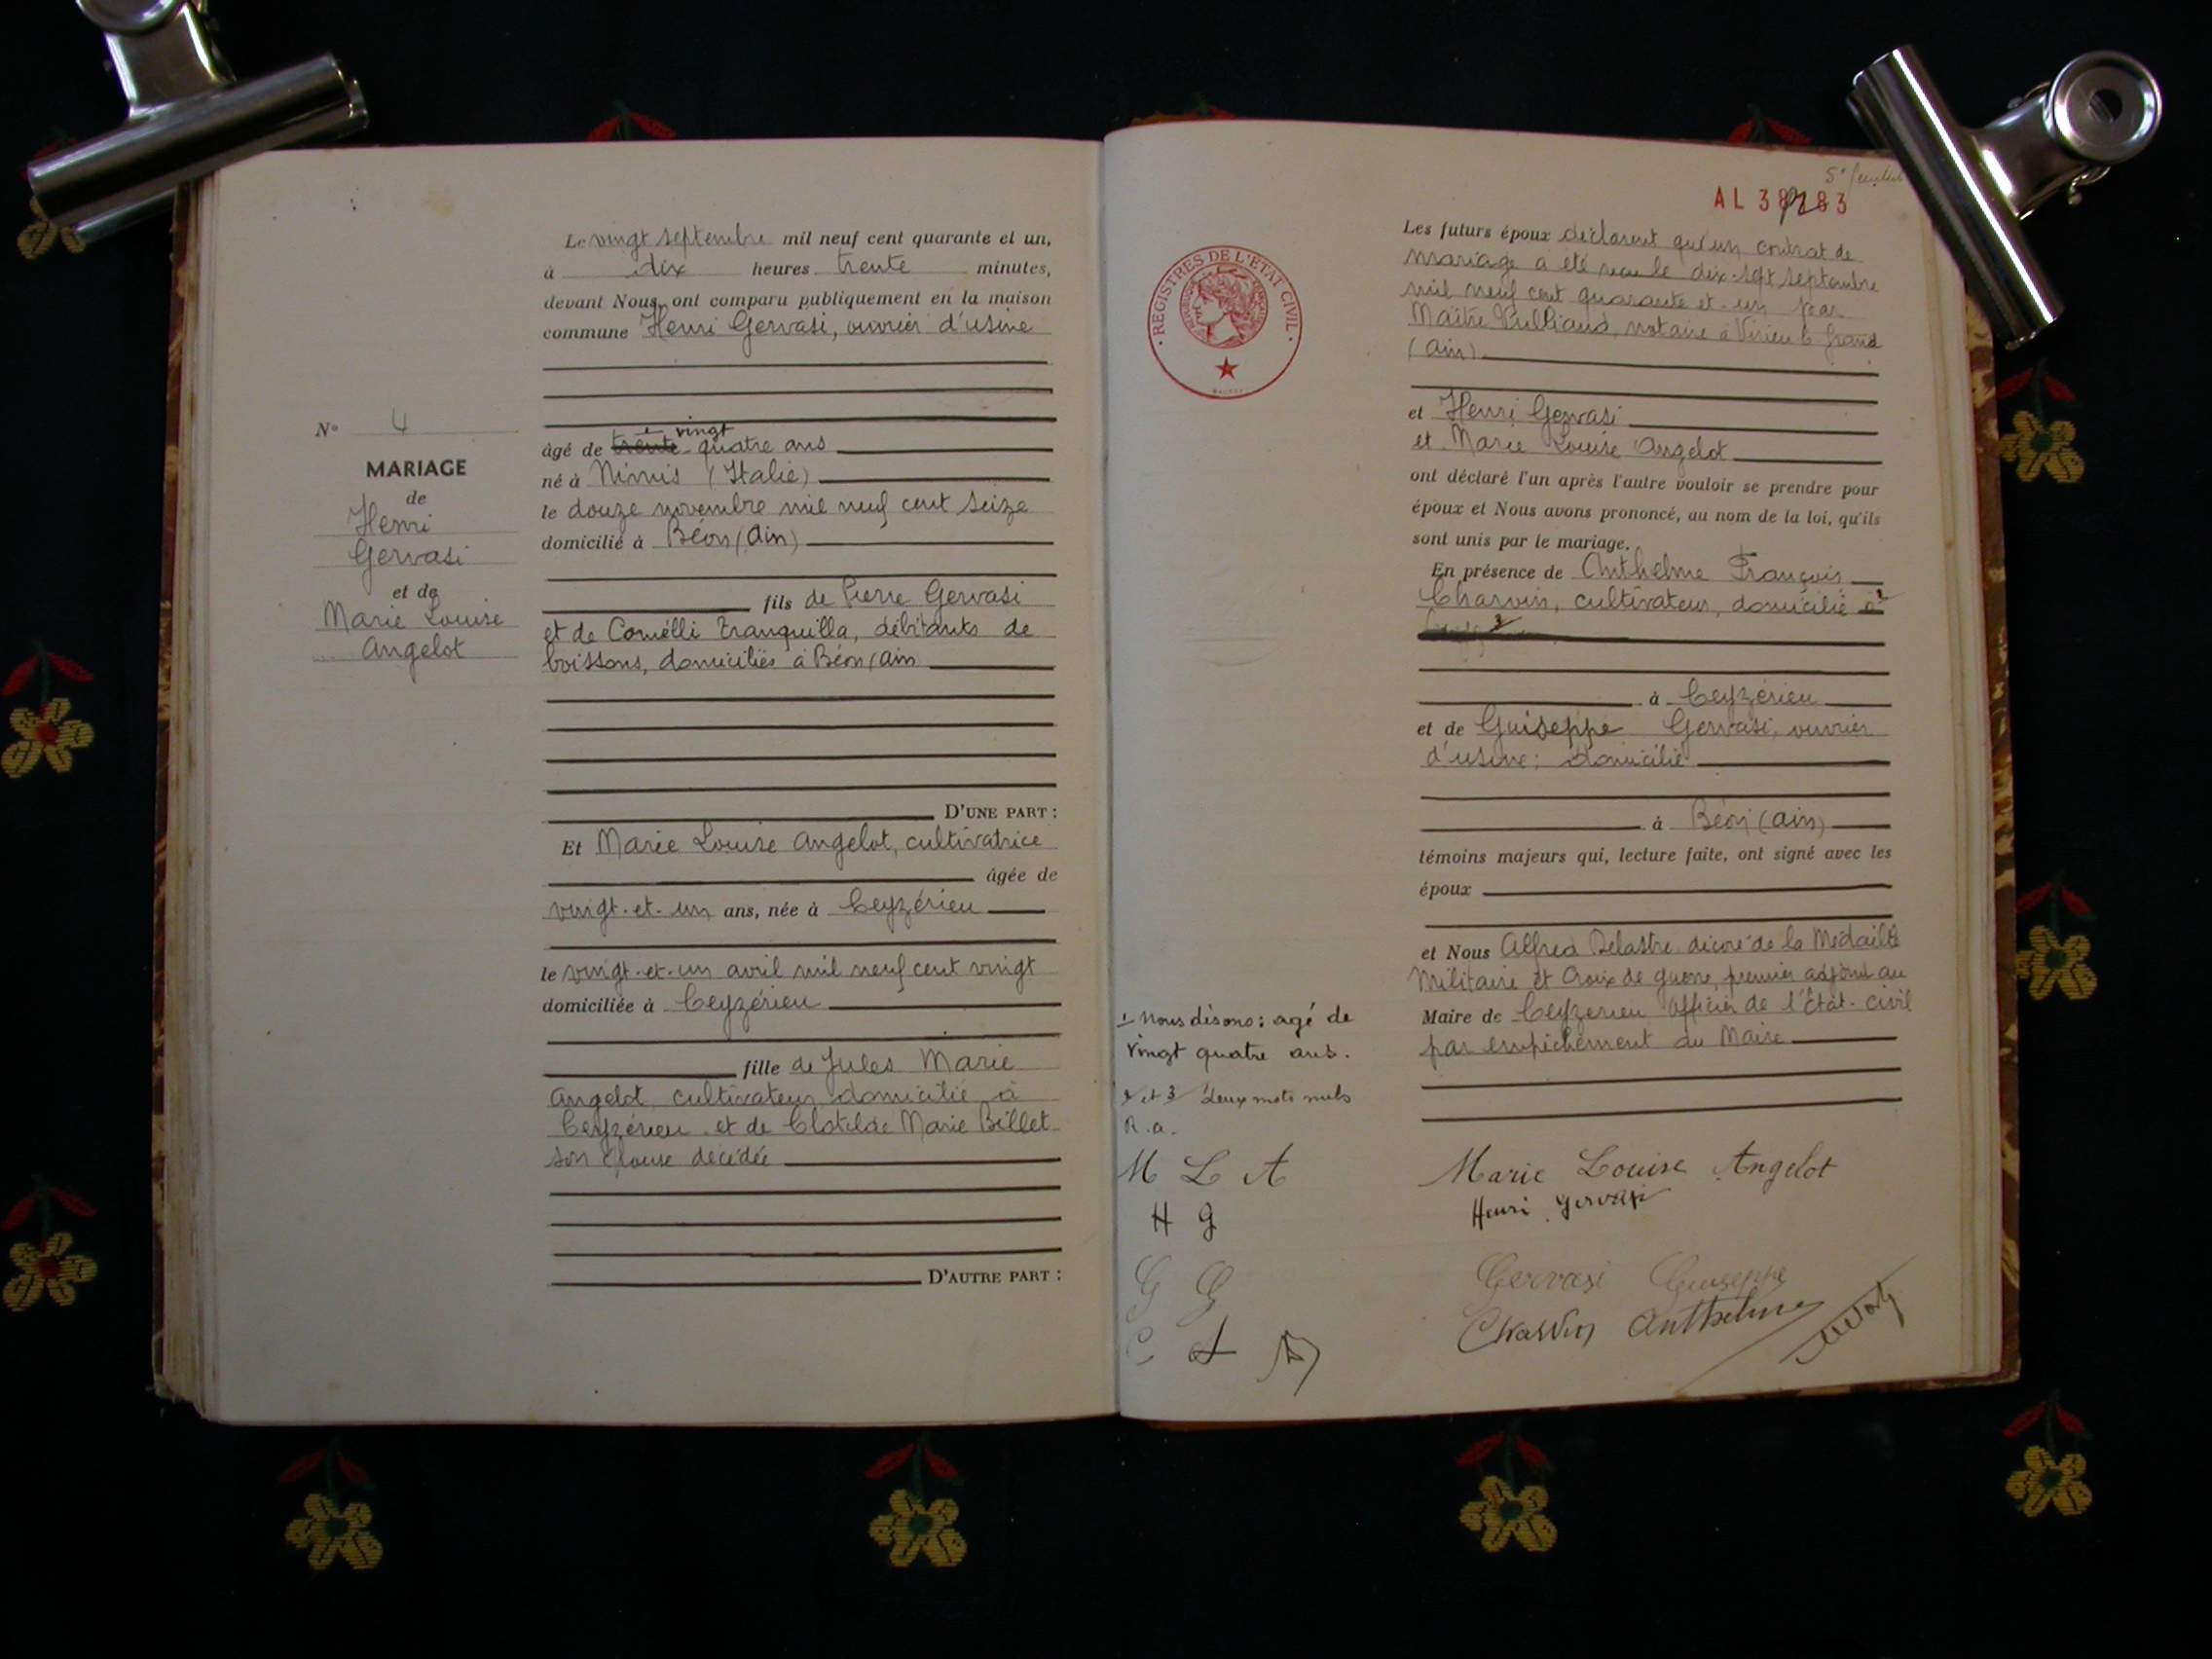 Le vingt septembre mil neuf cent quarante et un,
à dix heures trente minutes,
devant Nous, ont comparu publiquement en la maison
commune Henri Gervasi, ouvrier d'usine
N° 4
MARIAGE
de
Henri
Gervasi
et de
Marie Louise
Angelot
1 vingt
âgé de trente quatre ans
né à Nimis (Italie)
le douze novembre mil neuf cent seize
domicilié à Béon (Ain)
fils de Pierre Gervasi
et de Comelli Tranquilla, débitants de
boissons, domiciliés à Béon (Ain
D'UNE PART :
Et Marie Louise Angelot, cultivatrice
âgée de
vingt-et-un ans, née à Ceyzérieu
le vingt-et-un avril mil neuf cent vingt
domiciliée à Ceyzérieu
fille de Jules Marie
Angelot cultivateur domicilié à
Ceyzérieu et de Clotilde Marie Billet
son épouse décédée
D'AUTRE PART :
5e feuillet
AL 38283
REGISTRES DE L'ETAT CIVIL
Les futurs époux déclarent qu'un contrat de
mariage a été reçu le dix-sept septembre
mil neuf cent quarante et un par
Maître Vulliaud, notaire à Virieu le Grand
(Ain)
et Henri Gervasi
et Marie Louise Angelot
ont déclaré l'un après l'autre vouloir se prendre pour
époux et Nous avons prononcé, au nom de la loi, qu'ils
sont unis par le mariage.
En présence de Anthelme François
Charvin, cultivateur, domicilié à 2
3
à Ceyzérieu
et de Guiseppe Gervasi, ouvrier
d'usine; domicilié
à Béon (Ain)
témoins majeurs qui, lecture faite, ont signé avec les
époux
et Nous Alfred Delastre décoré de la Médaille
Militaire et Croix de guerre, premier adjoint au
Maire de Ceyzerieu officier de l'Etat-civil
par empêchement du Maire
1 Nous disons: agé de
vingt quatre ans.
2 et 3 deux mots nuls
R.a.
M L A
H G
G G
C A
Marie Louise Angelot
Henri Gervasi
Gervasi Guiseppe
Charvin Anthelme